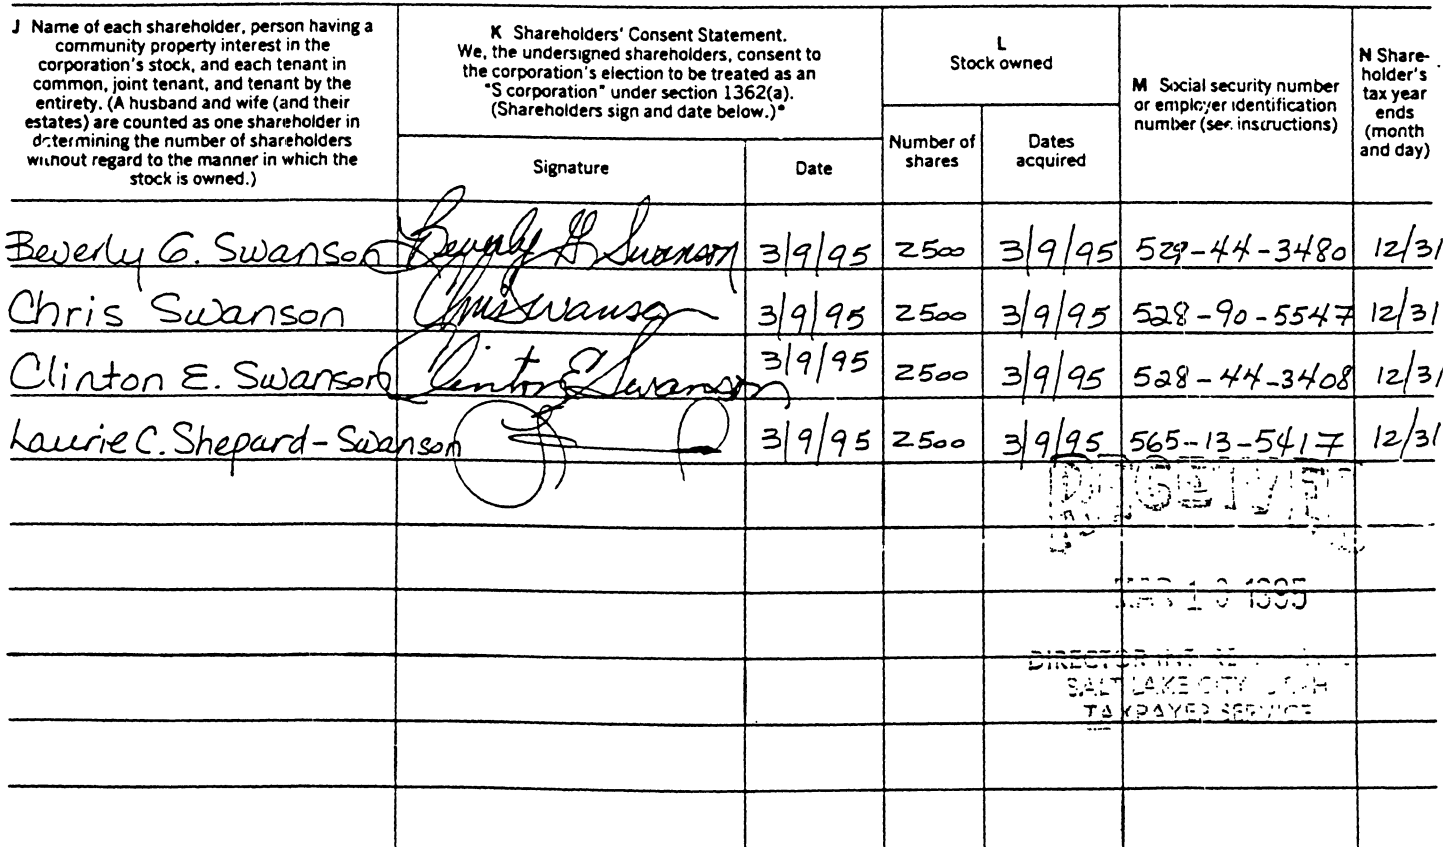 J Name of each shareholder, person having a
community property interest in the
corporation's stock, and each tenant in
common, joint tenant, and tenant by the
entirety. (A husband and wife (and their
estates) are counted as one shareholder in
determining the number of shareholders
without regard to the manner in which the
stock is owned.)
K Shareholders' Consent Statement.
We, the undersigned shareholders, consent to
the corporation's election to be treated as an
"S corporation" under section 1362(a).
(Shareholders sign and date below.)*
Signature
Date
L
Stock owned
Number of
shares
Dates
acquired
M Social security number
or employer identification
number (see instructions)
N Share-
holder's
tax year
ends
(month
and day)
Beverly G. Swanson Beverly G Swanson 3/9/95 2500 3/9/95 529-44-3480 12/31
Chris Swanson Chris Swanson 3/9/95 2500 3/9/95 528-90-5547 12/31
Clinton E. Swanson Clinton E Swanson 3/9/95 2500 3/9/95 528-44-3408 12/31
Laurie C. Shepard-Swanson 3/9/95 2500 3/9/95 565-13-5417 12/31
MAR 1 1995
DIRECTOR
SALT LAKE CITY UTAH
TAXPAYER SERVICE